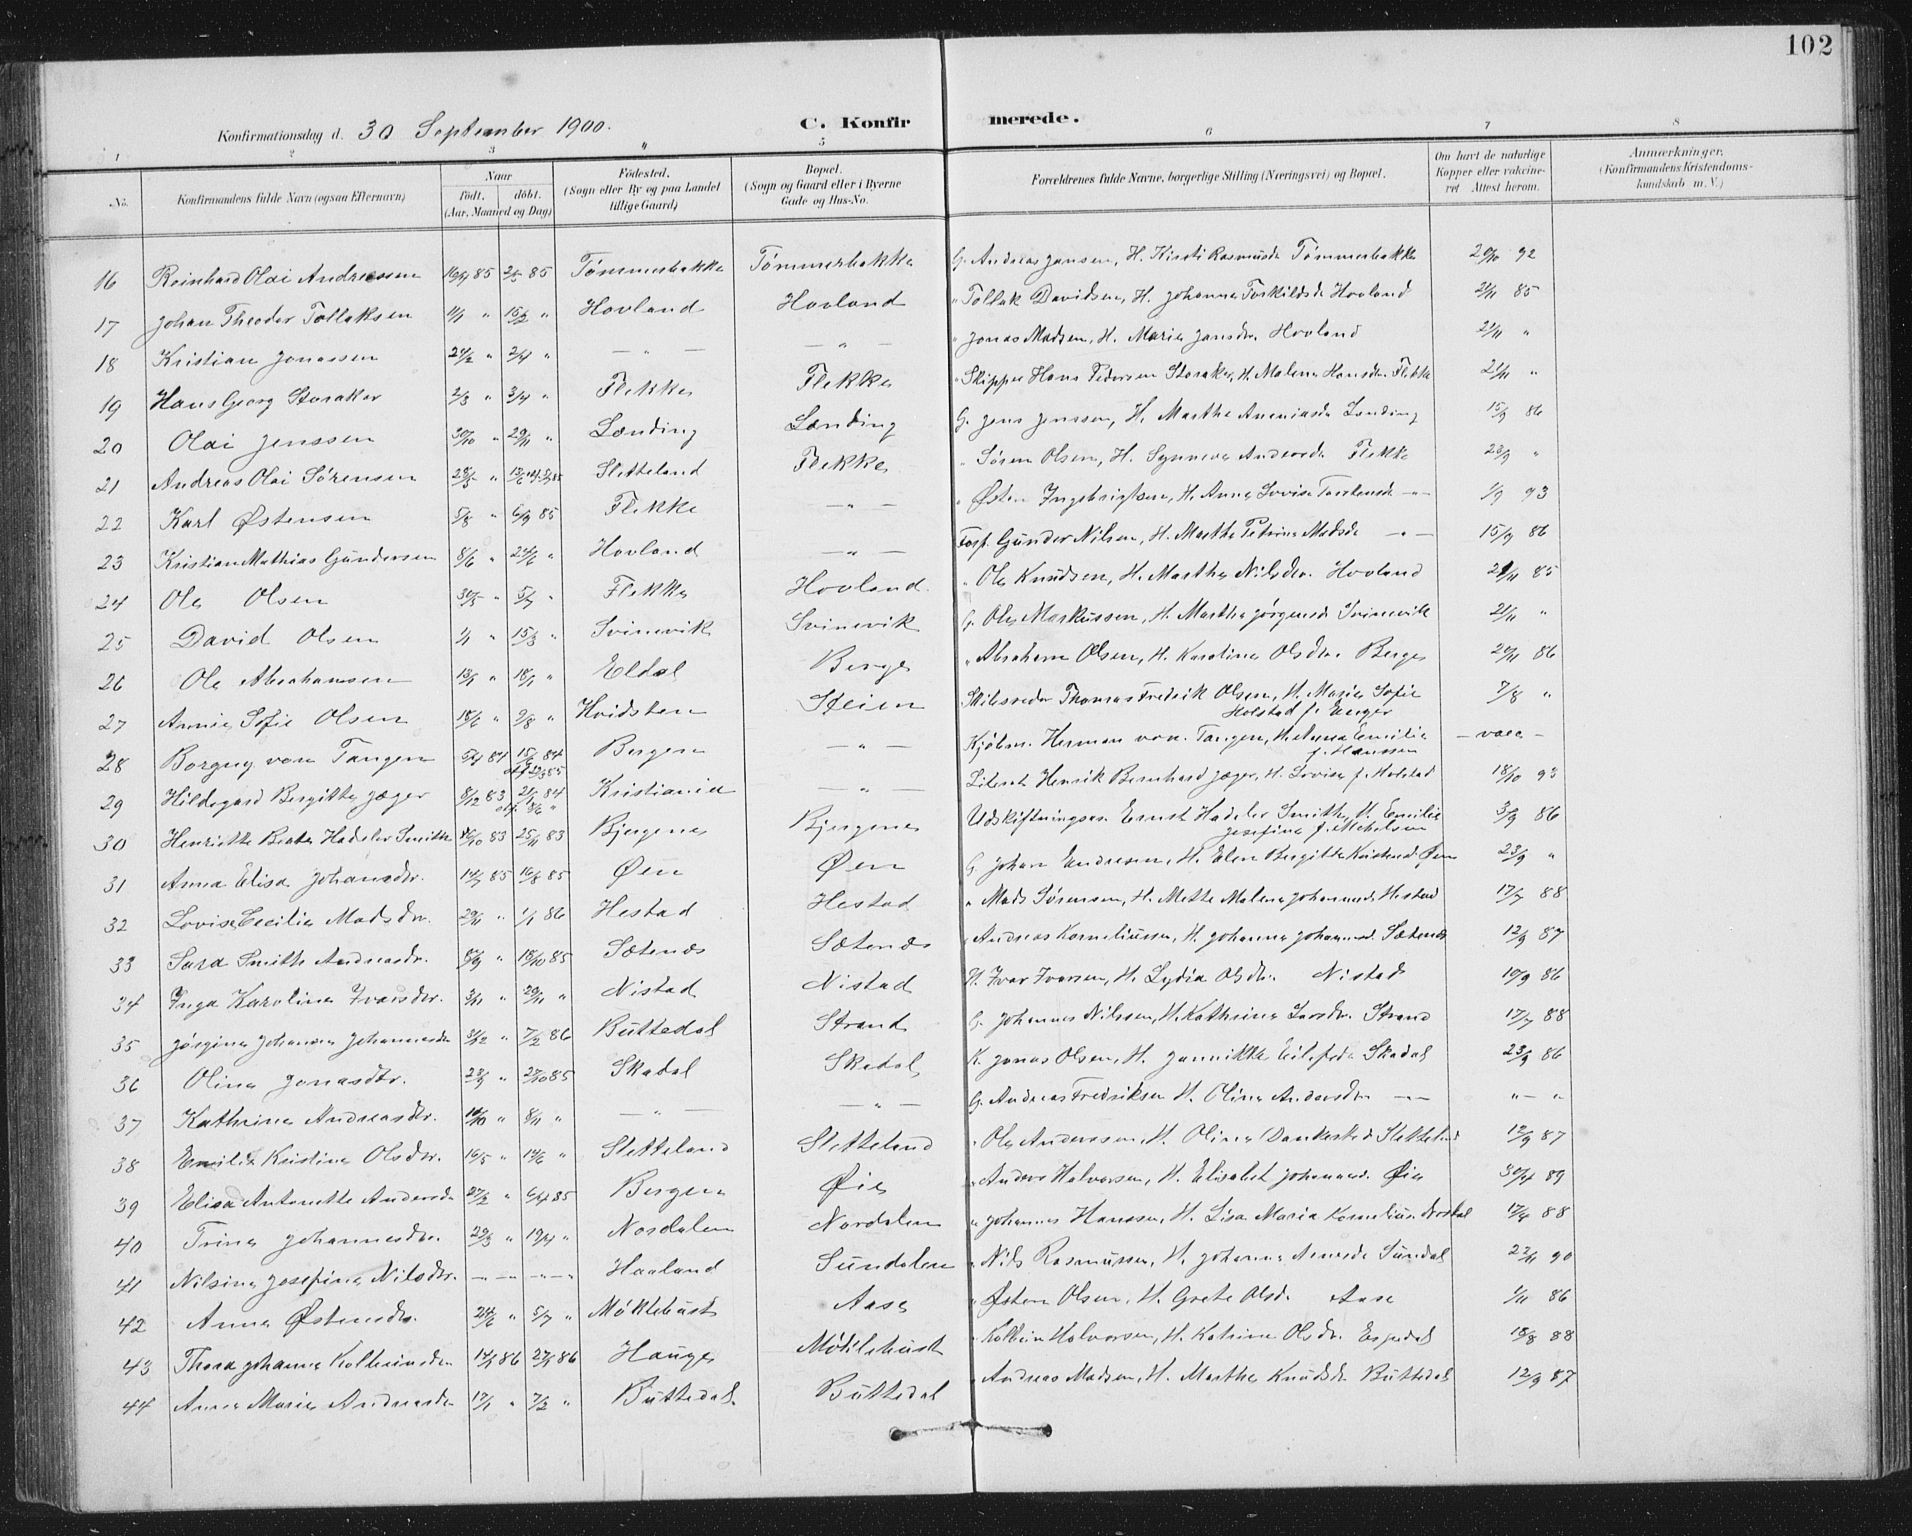 102
Konfirmationsdag d. 30 September 1900. C. Konfirmerede.
1 2 3 " 5 6 7 8
No. Konfirmandens fulde Navn (ogsaa Efternavn) Naar født, døbt. (Aar, Maaned og Dag) Födested. (Sogn eller By og paa Landet tillige Gaard) Bopæl. (Sogn og Gaard eller i Byerne Gade og Hus-No. Forældrenes fulde Navne, borgerlige Stilling (Næringsvei) og Bopæl. Om havt de naturlige Kopper eller vaccineret Attest herom. Anmærkninger. (Konfirmandens Kristendomskundskab m. V.)
16 Reinhard Olai Andreassen 85 85 Tømmerbakke Tømmerbakke G. Andreas Jansen, H. Kirsti Rasmusd. Tømmerbakke 92
17 Johan Theodor Tollaksen 1/1 " 15/2 " Hovland Hovland " Tollak Davidsen, H. Johanne Torkildsd. Hovland 21/11 85
18 Kristian Jonassen 24/2 " 2/4 " — " — — " — " Jonas Madsen, H. Marie Jansdr. Hovland 21/11 "
19 Hans Georg Storaker 2/3 " 3/4 " Flekke Flekke " Skipper Hans Pedersen Storaker, H. Malene Hansdr. Flekke 21/11 "
20 Olai Jenssen 30/10 " 29/11 " Lending Lending G. Jens Jenssen, H. Marthe Ananiasd. Lending 15/9 86
21 Andreas Olai Sørensen " Sletteland Flekke " Søren Olsen, H. Synneve Andersd. Flekke 23/9 "
22 Karl Østensen 5/8 " 6/9 85 Flekke — " — " Østen Ingebrigtsen, H. Anne Lovise Torstensd. — " — 1/9 93
23 Kristian Mathias Gundersen 8/6 " 24/6 " Hovland — " — Forp. Gunder Nilsen, H. Marthe Petrine Madsd. — " — 15/9 86
24 Ole Olsen 30/5 " 5/7 " Flekke Hovland. " Ole Knudsen, H. Marthe Nilsdr. Hovland 21/11 85
25 David Olsen 1/1 " 15/3 " Svinevik Svinevik G. Ole Markussen, H. Marthe Jørgensd. Svinevik 21/11 "
26 Ole Abrahamsen 13/1 " 18/1 " Eldal Berge " Abraham Olsen, H. Karoline Olsdr. Berge 86
27 Annie Sofie Olsen 18/6 " 2/8 " Hvidsten Steien Skibsreder Thomas Fredrik Olsen, H. Marie Sofie Holstad f. Enger 7/8 "
28 Borgny von Tangen 84 15/6 84 Bergen — " — Kjøbm. Herman von Tangen, H. Anna Emilie f. Hanssen — vacc —
29 Hildegard Bergitte Jæger 8/12 83 84 Kristiania — " — Literat Henrik Bernhard Jæger, H. Lovise f. Holstad 18/10 93
30 Henriette Beate Hadeler Smith 83 25/11 83 Bjergene Bjergene Udskiftningsf. Ernst Hadeler Smith, H. Emilie Josefine f. Michelsen 3/9 86
31 Anna Elisa Johansdr. 14/7 85 16/8 85 Øen Øen G. Johan Endresen, H. Elen Bergitte Kristensd. Øen 23/9 "
32 Lovise Cecilie Madsdr. 29/11 " 1/1 86 Hestad Hestad " Mads Sørensen, H. Mette Malene Johannesd. Hestad 17/7 88
33 Sara Smith Andreasdr. " 18/10 85 Sætenes Sætenes " Andreas Korneliussen, H. Johanne Johannesd. Sætenes 12/9 87
34 Inga Karoline Ivarsdr. 3/11 " 29/11 " Nistad Nistad H. Ivar Ivarsen, H. Lydia Olsdr. Nistad 19/9 86
35 Jørgine Johanne Johannesdr. 31/12 " 7/2 86 Buttedal Strand G. Johannes Nilssen, H. Kathrine Larsdr. Strand 17/7 88
36 Oline Jonasdtr. 23/9 " 27/10 85 Skadal Skadal K. Jonas Olsen, H. Jannikke Eilifsdr. Skadal 23/9 86
37 Kathrine Andreasdr. 14/10 " 8/11 " — " — — " — G. Andreas Fredriksen H. Oline Andersdr. — " — " — "
38 Emilie Kristine Olsdtr. 16/5 " 14/6 " Sletteland Sletteland " Ole Anderssen, H. Oline Dankertsd. Sletteland 12/9 87
39 Elisa Antonette Andersdr. 27/2 " 6/4 85 Bergen Øie " Anders Halvorsen, H. Elisabet Johannesd. Øie 30/4 89
40 Trine Johannesdr. 29/3 " 19/4 " Nordalen Nordalen " Johannes Hanssen, H. Lisa Maria Korneliusd. Nordal 17/4 88
41 Nilsine Josefine Nilsdtr. — " — — " — Haaland Sundalen " Nils Rasmussen, H. Johanne Arnesdr. Sundal 27/11 90
42 Anna Østensdr. 24/6 " 5/7 " Møklebust Aase " Østen Olsen, H. Grete Olsd. Aase 1/11 86
43 Thora Johanne Kolbeinsdr. 86 86 Hauge Møklebust " Kolbein Halvorsen, H. Katrine Olsdr. Espedal 18/8 88
44 Anne Marie Andreasdr. 17/1 " 7/2 " Buttedal. Buttedal " Andreas Madsen, H. Marthe Knudsdr. Buttedal 12/9 87